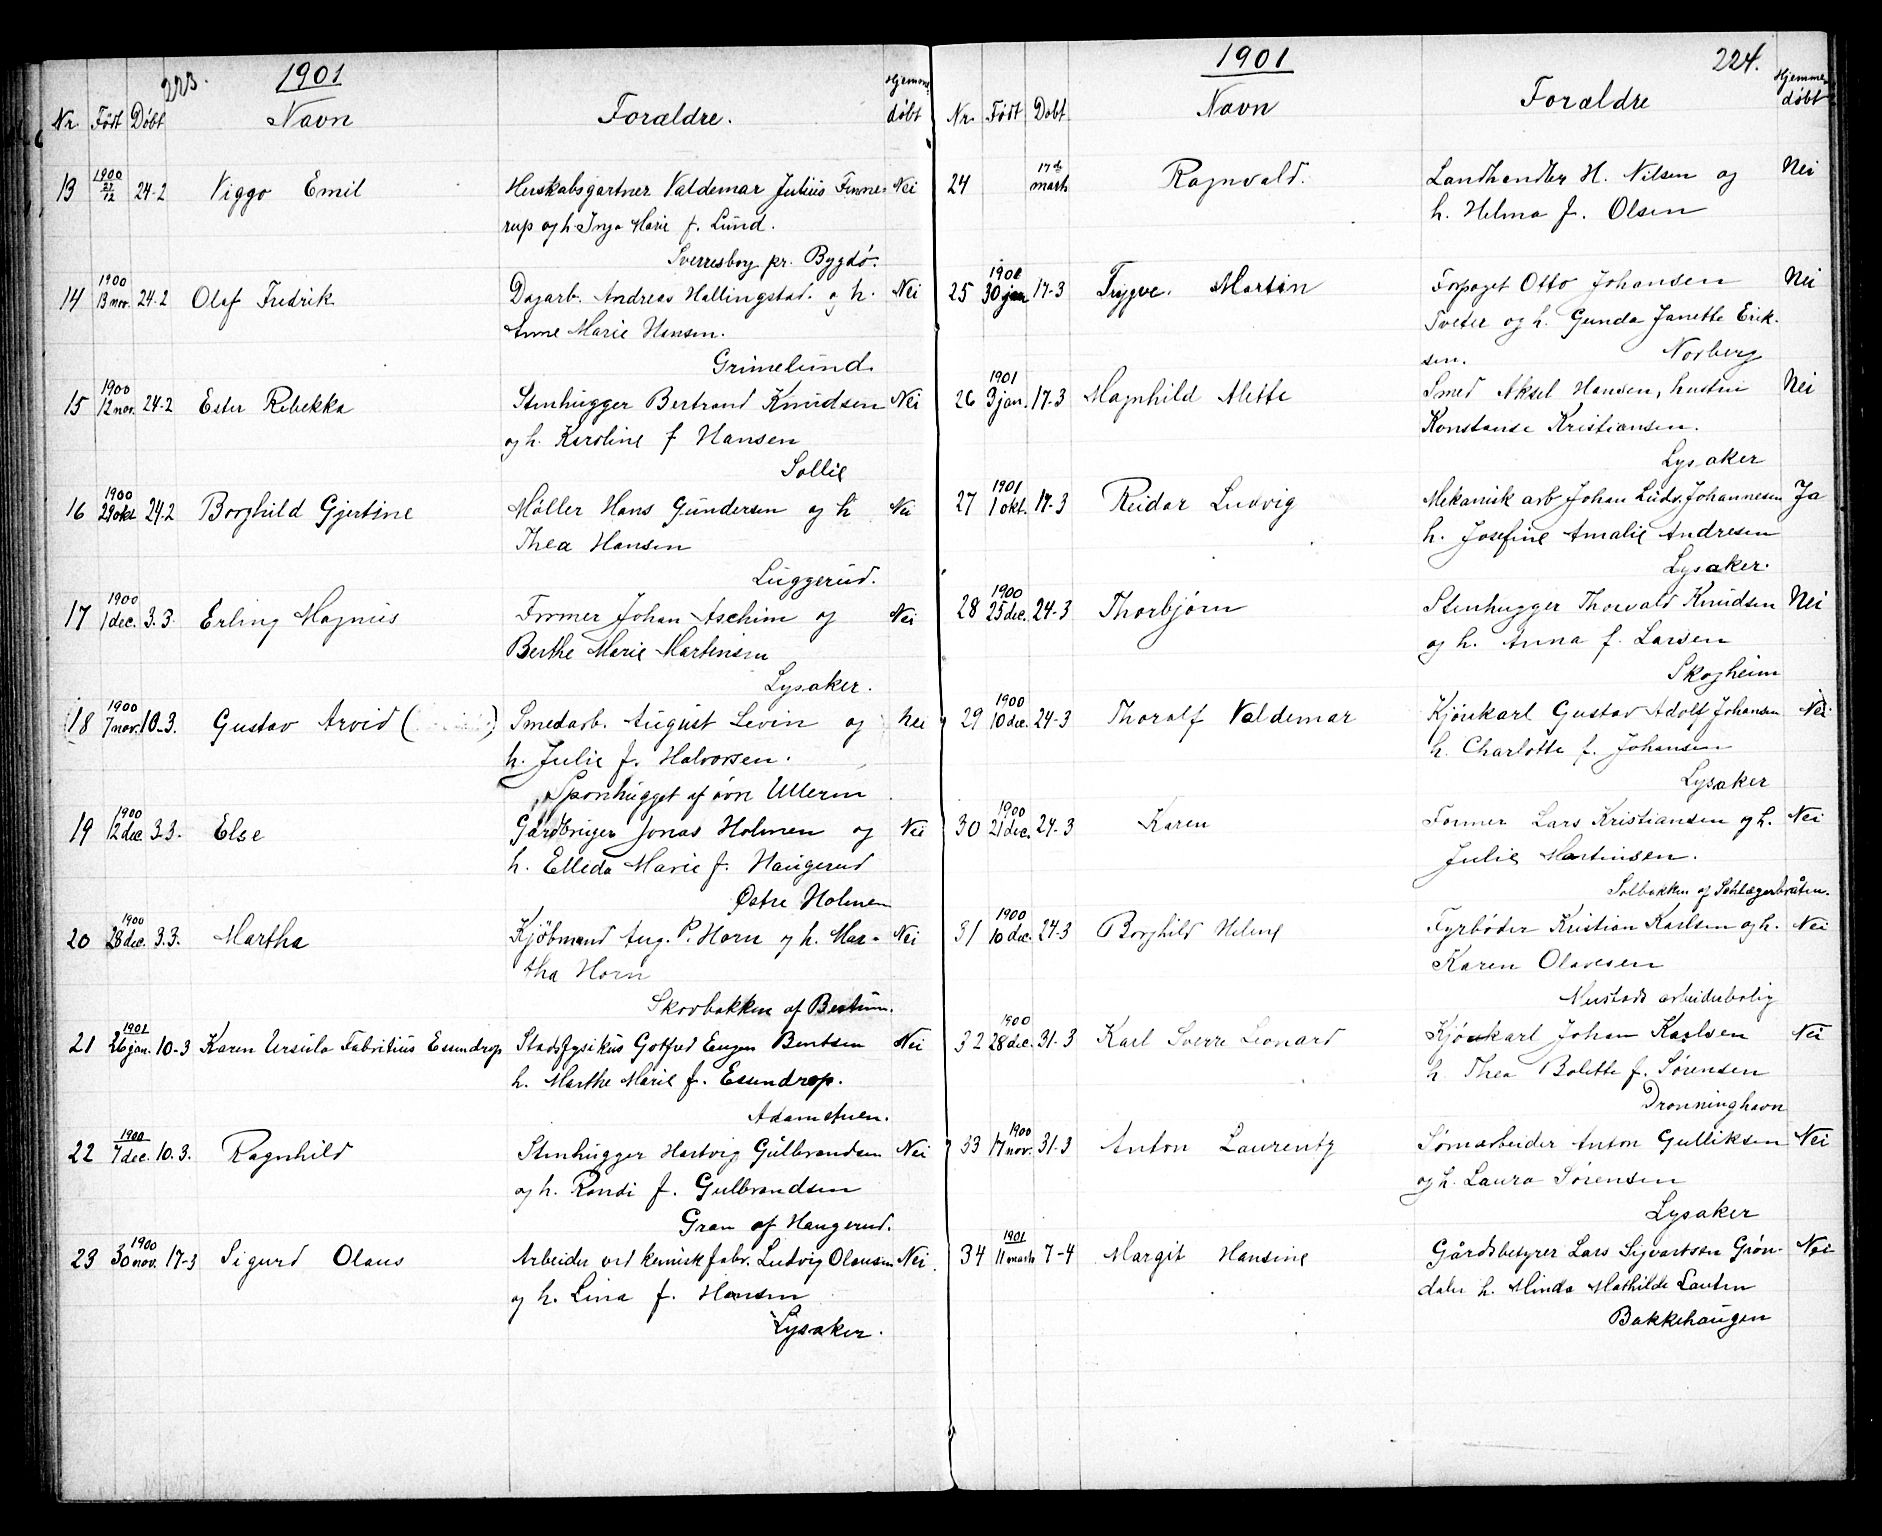 223. 1901
Nr. Født Døbt Navn Forældre. Hjemme-
døbt
13 1900 21/12 24-2 Viggo Emil Herskabsgartner Valdemar Julius Finne- Nei
rup og h. Inga Marie f. Lund.
Sverresborg pr. Bygdø.
14 1900 13 nov. 24-2 Olaf Fredrik Dagarb. Andreas Hallingstad. og h. Nei
Anne Marie Hansen.
Grimelund.
15 1900 12 nov. 24-2 Ester Rebekka Stenhugger Bertrand Knudsen Nei
og h. Karoline f Hansen
Sollie
16 1900 29 okt 24-2 Borghild Gjertine Møller Hans Gundersen og h Nei
Thea Hansen
Luggerud.
17 1900 1 dec. 3.3. Erling Magnus Former Johan Aschim og Nei
Berthe Marie Martinsen
Lysaker.
18 1900 7 nov. 10-3. Gustav Arvid ( ) Smedarb. August Levin og Nei
h. Julie f. Halvorsen.
Sponhugget af øvre Ullern
19 1900 12 dec. 3.3. Else Gårdbruger Jonas Holmen og Nei
h. Elleda Marie f. Haugerud
Østre Holmen
20 1900 28 dec. 3.3. Martha Kjøbmand Aug. P. Horn og h. Mar- Nei
tha Horn
Skovbakken af Bestum.
21 1901 26 jan. 10-3 Karen Ursula Fabritius Essendrop Stadsfysikus Gotfred Eugen Bentsen Nei
h. Marthe Marie f. Essendrop.
Adamstuen.
22 1900 7 dec. 10.3. Ragnhild Stenhugger Hartvig Gulbrandsen Nei
og h. Randi f. Gulbrandsen
Gran af Haugerud.
23 1900 30 nov. 17-3 Sigurd Olaus Arbeider ved kemisk fabr. Ludvig Olausen Nei.
og h. Lina f. Hansen
Lysaker.
1901 224.
Nr. Født Døbt Navn Forældre Hjemme-
døbt
24 17de marts Ragnvald. Landhandler H. Nilsen og Nei
h. Helma f. Olsen
25 1901 30 jan 17-3 Trygve. Martin Forpagt Otto Johansen Nei
Tveter og h. Gunda Janette Erik-
sen. Norberg
26 1901 3 jan. 17-3 Magnhild Alette Smed Aksel Hansen, hustru Nei
Konstanse Kristiansen.
Lysaker
27 1901 1 okt. 17-3 Reidar Ludvig Mekanisk arb Johan Ludv. Johannesen Ja
h. Josefine Amalie Andresen
Lysaker.
28 1900 25 dec. 24-3 Thorbjørn Stenhugger Thorvald Knudsen Nei
og h. Anna f. Larsen
Skogheim
29 1900 10 dec. 24-3 Thoralf Valdemar Kjørekarl Gustav Adolf Johansen Nei
h. Charlotte f. Johansen
Lysaker
30 1900 21 dec. 24-3 Karen Former Lars Kristiansen og h. Nei
Julie Martinsen.
Solbakken af Sehlægerbråten.
31 1900 10 dec. 24-3 Borghild Helene Fyrbøder Kristian Karlsen og h. Nei
Karen Olavesen
Mustads arbeiderbolig
32 1900 28 dec. 31-3 Karl Sverre Leonard Kjørekarl Johan Karlsen Nei
h. Thea Bolette f. Sørensen
Dronninghavn
33 1900 17 nov. 31-3 Anton Laurentz Sømarbeider Anton Gulliksen Nei
og h. Laura Sørensen
Lysaker
34 1901 11 marts 7-4 Margit Hansine Gårdsbestyrer Lars Sigvartsen Grøn- Nei
dalen h. Minda Mathilde
Bakkehaugen